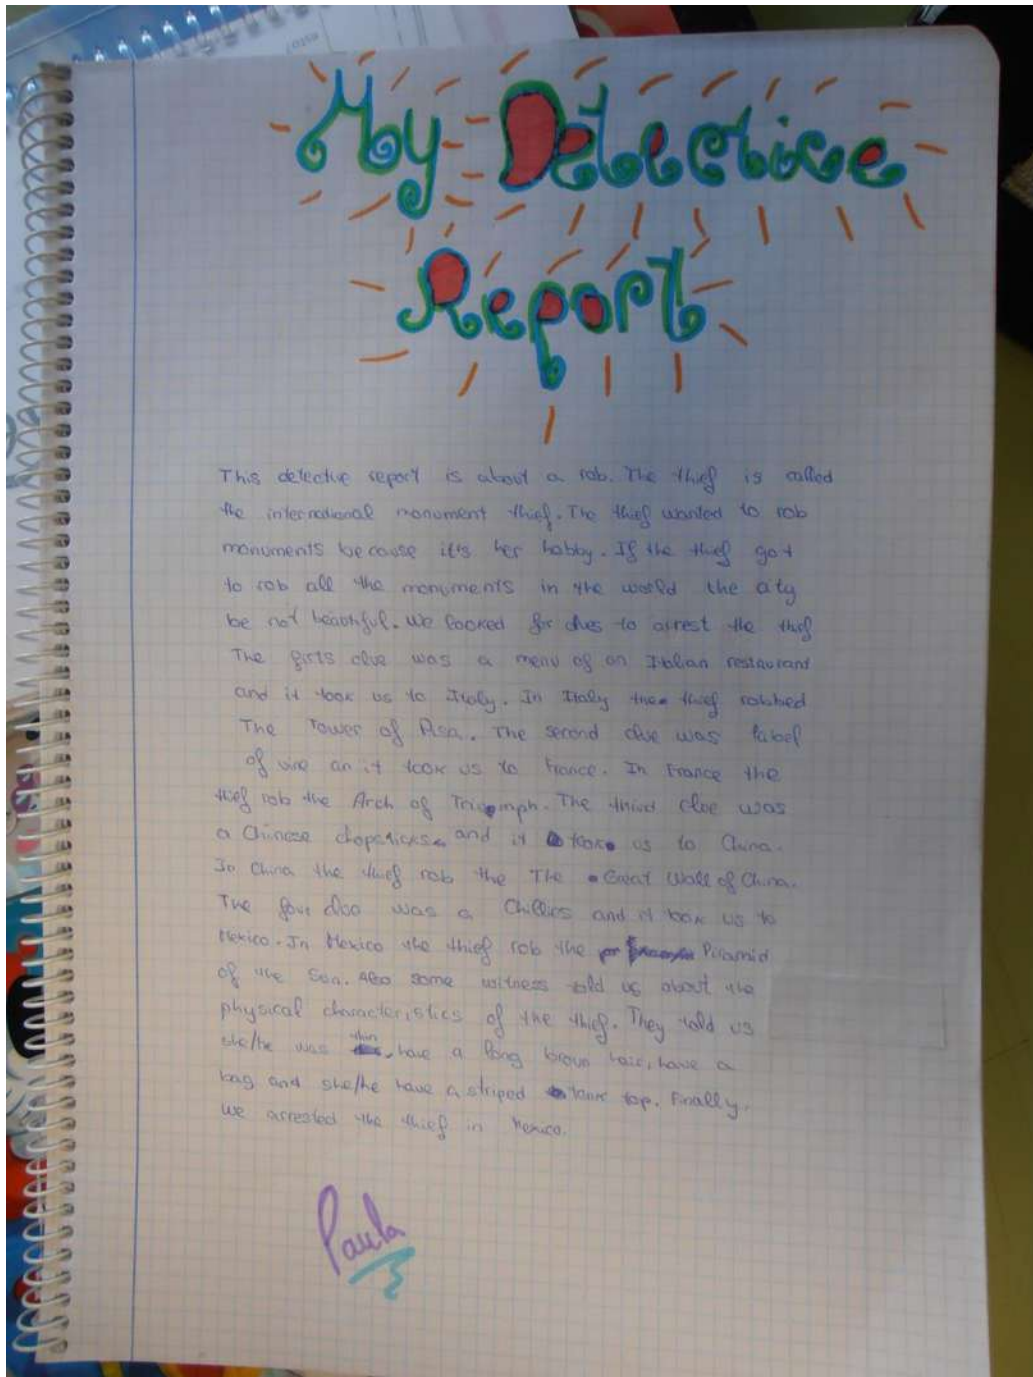 My Detective
Report
This detective report is about a rob. The thief is called
the international monument thief. The thief wanted to rob
monuments because it's her hobby. If the thief got
to rob all the monuments in the world the city
be not beautiful. We looked for clues to arrest the thief
The firts clue was a menu of an Italian restaurant
and it took us to Italy. In Italy the thief robbed
The Tower of Pisa. The second clue was label
of wine an it took us to France. In France the
thief rob the Arch of Triomph. The third clue was
a Chinese chopsticks and it took us to China.
In China the thief rob the The Great Wall of China.
The four clue was a Chillies and it took us to
Mexico. In Mexico the thief rob the Piramid
of the Sun. Also some witness told us about the
physical characteristics of the thief. They told us
she/he was thin, have a long brown hair, have a
bag and she/he have a striped tank top. Finally.
We arrested the thief in Mexico.
Paula